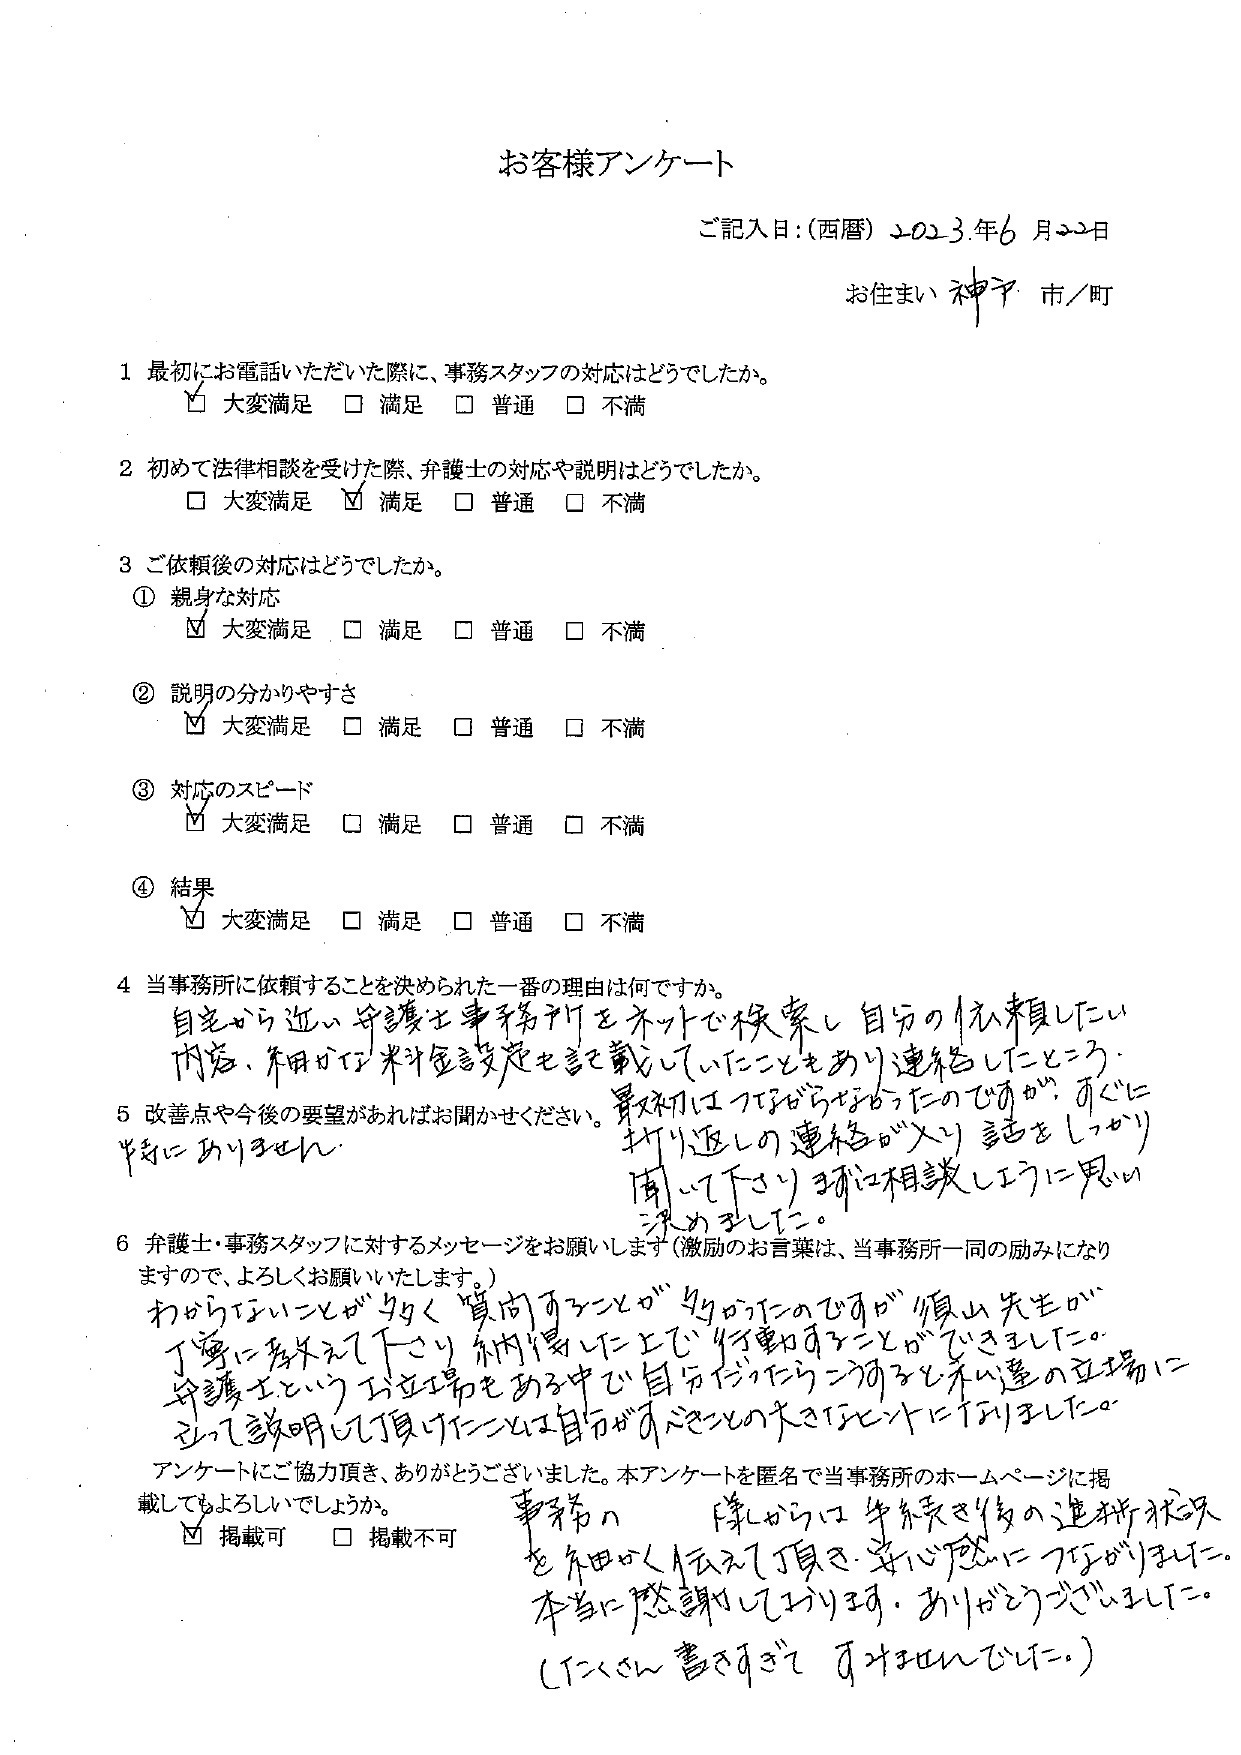 お客様アンケート
ご記入日：（西暦） 2023.年6 月22日
お住まい 神戸 市／町
1 最初にお電話いただいた際に、事務スタッフの対応はどうでしたか。
☑ 大変満足 □ 満足 □ 普通 □ 不満
2 初めて法律相談を受けた際、弁護士の対応や説明はどうでしたか。
□ 大変満足 ☑ 満足 □ 普通 □ 不満
3 ご依頼後の対応はどうでしたか。
① 親身な対応
☑ 大変満足 □ 満足 □ 普通 □ 不満
② 説明の分かりやすさ
☑ 大変満足 □ 満足 □ 普通 □ 不満
③ 対応のスピード
☑ 大変満足 □ 満足 □ 普通 □ 不満
④ 結果
☑ 大変満足 □ 満足 □ 普通 □ 不満
4 当事務所に依頼することを決められた一番の理由は何ですか。
自宅から近い弁護士事務所をネットで検索し自分の依頼したい
内容、細かな料金設定も記載していたこともあり連絡したところ、
最初はつながらなかったのですが、すぐに
折り返しの連絡が入り話をしっかり
聞いて下さりまずは相談しように思い
決めました。
5 改善点や今後の要望があればお聞かせください。
特にありません
6 弁護士・事務スタッフに対するメッセージをお願いします（激励のお言葉は、当事務所一同の励みになり
ますので、よろしくお願いいたします。）
わからないことが多く質問することが多かったのですが須山先生が
丁寧に教えて下さり納得した上で行動することができました。
弁護士というお立場もある中で自分だったらこうすると私達の立場に
立って説明して頂けたことは自分がすべきことの大きなヒントになりました。
事務の 様からは手続き後の進捗状況
を細かく伝えて頂き、安心感につながりました。
本当に感謝しております。ありがとうございました。
（たくさん書きすぎて すみませんでした。）
アンケートにご協力頂き、ありがとうございました。本アンケートを匿名で当事務所のホームページに掲
載してもよろしいでしょうか。
☑ 掲載可 □ 掲載不可